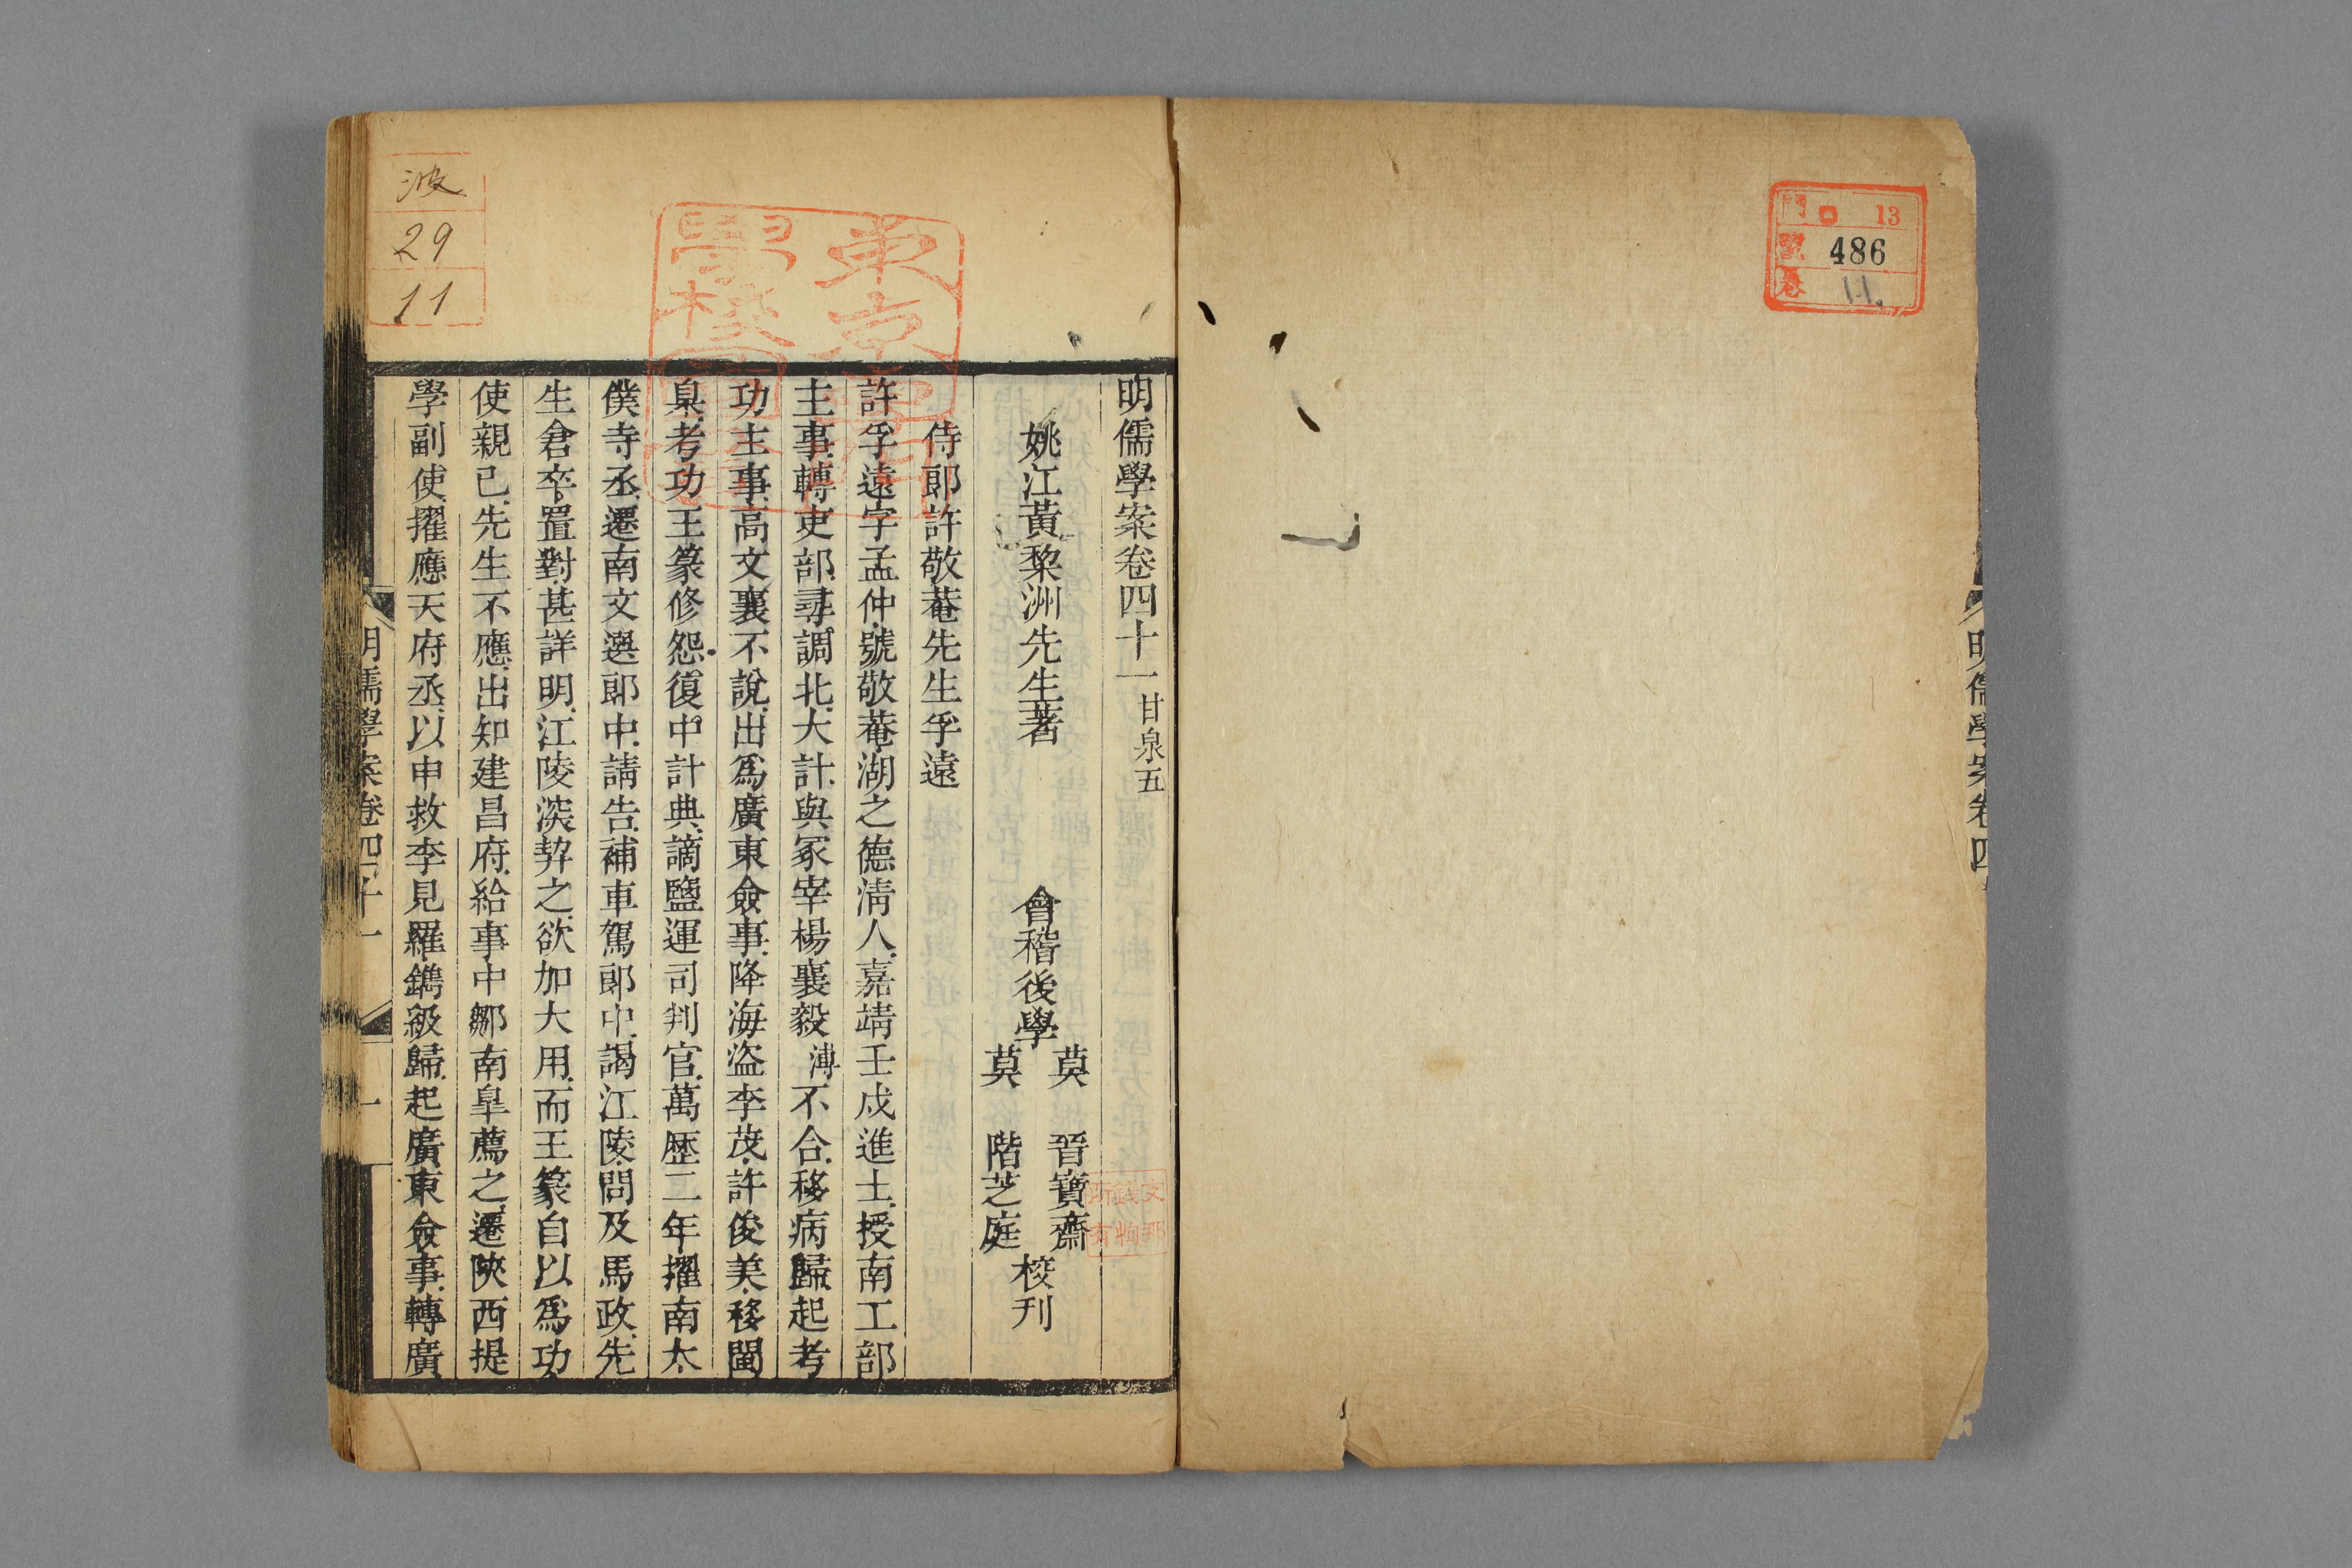 門 ロ 13
號 486
卷 11.
明儒學案卷四
明儒學案卷四十一 甘泉五
姚江黃棃洲先生著 會稽後學 莫 晉寶齋 莫 階芝庭 校刊
侍郎許敬菴先生孚遠
許孚遠字孟仲號敬菴湖之德淸人嘉靖壬戌進士授南工部
主事轉吏部尋調北大計與冢宰楊襄毅溥不合移病歸起考
功主事高文襄不說出爲廣東僉事降海盜李茂許俊美移閩
臬考功王篆修怨復中計典謫鹽運司判官萬歷二年擢南太
僕寺丞遷南文選郎中請告補車駕郎中謁江陵問及馬政先
生倉卒置對甚詳明江陵深契之欲加大用而王篆自以爲功
使親已先生不應出知建昌府給事中鄒南皐薦之遷陜西提
學副使擢應天府丞以申救李見羅鐫級歸起廣東僉事轉廣
明儒學案卷四十一 一
波
29
11
東京專門
學校圖